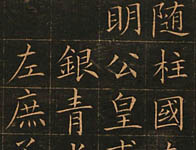 随柱國
明公皇
銀青
左庶